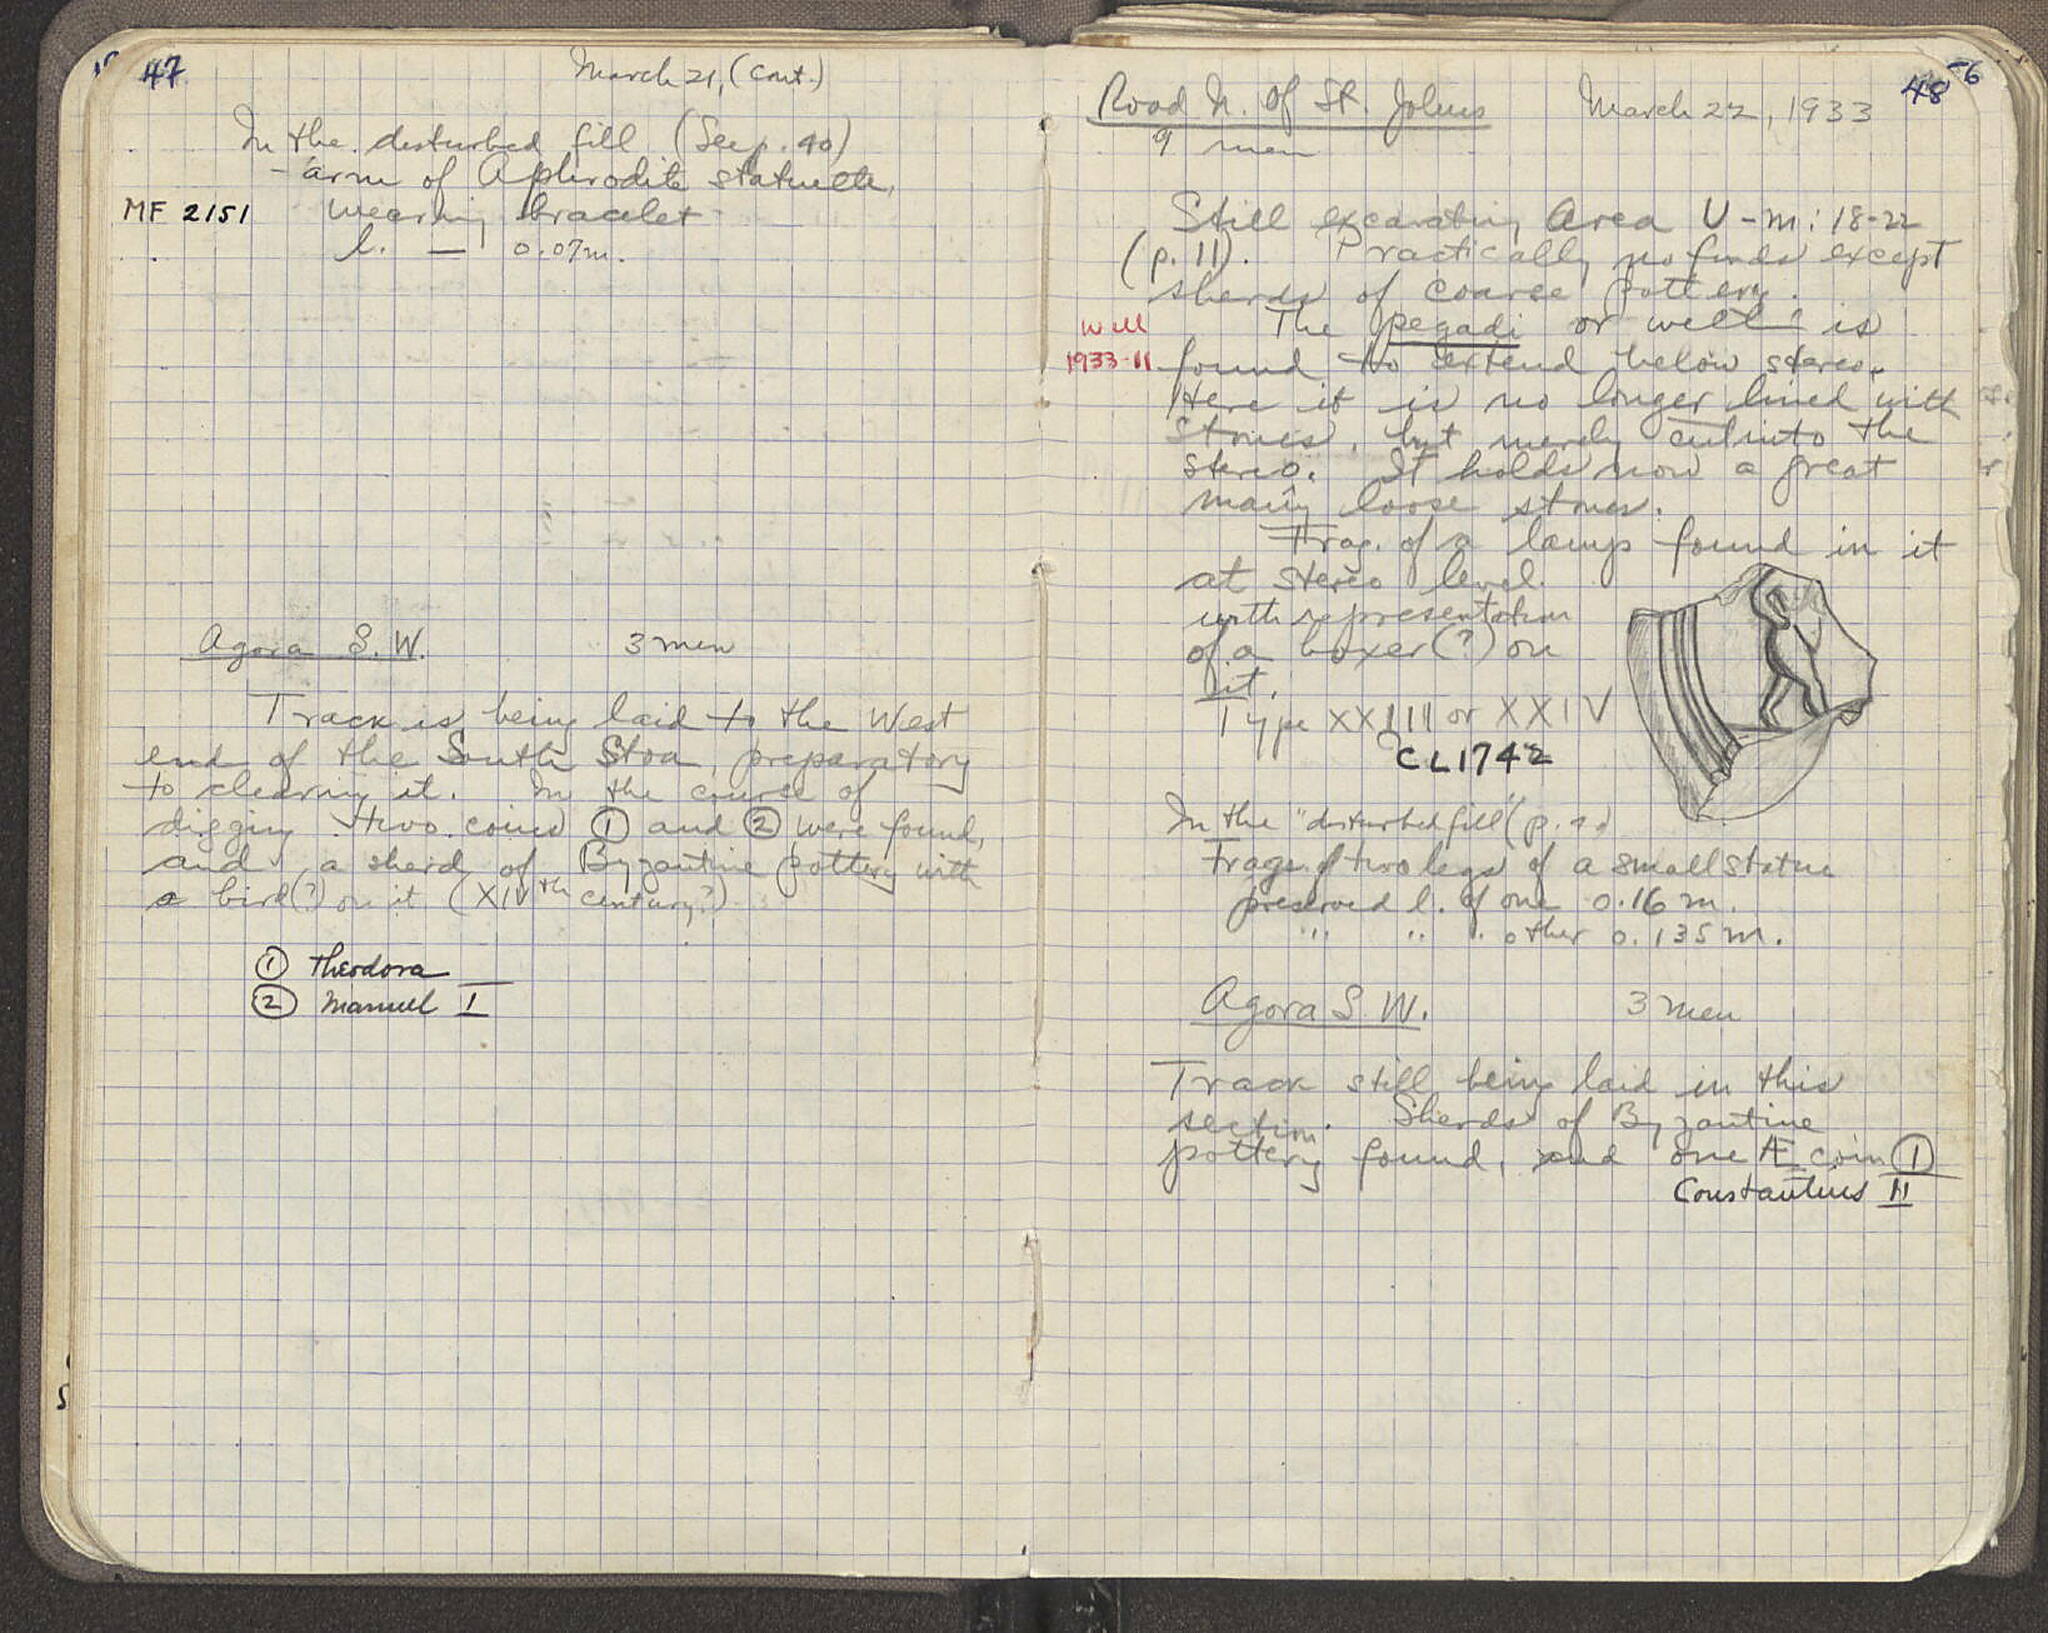 47
March 21, (Cont.)
In the disturbed fill (See p. 40)
- arm of Aphrodite statuette,
MF 2151 wearing bracelet
l. — 0.07m.
Agora S. W. 3 men
Track is being laid to the West
end of the South Stoa, preparatory
to clearing it. In the course of
digging two coins ① and ② were found,
and a sherd of Byzantine pottery with
a bird(?) on it (XIVth century?)
① Theodora
② Manuel I
48
Road N. of St. Johns March 22, 1933
9 men
Still excavating Area U - M : 18-22
(p. 11). Practically no finds except
sherds of coarse pottery.
Well The pegadi or well is
1933-11 found to extend below stereo.
Here it is no longer lined with
stones, but merely cut into the
stereo. It holds now a great
many loose stones.
Frag. of a lamp found in it
at stereo level
with representation
of a boxer(?) on
it.
Type XXIII or XXIV
CL1742
In the "disturbed fill" (p.
Frags. of two legs of a small statue
preserved l. of one 0.16 m.
" " " other 0.135 m.
Agora S. W. 3 men
Track still being laid in this
section. Sherds of Byzantine
pottery found, and one Æ coin ①
Constantius II